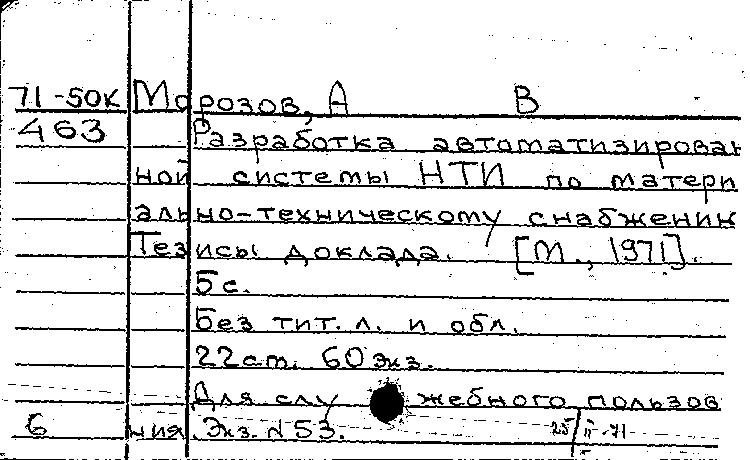 71-50к Морозов, А В
463 Разработка автоматизирован
ной системы НТИ по матери
ально-техническому снабжению
Тезисы доклада. [М., 1971].
5 с.
Без тит. л. и обл.
22 см. 60 экз.
Для служебного пользов
6 ния. Экз. №53. 25/II-71